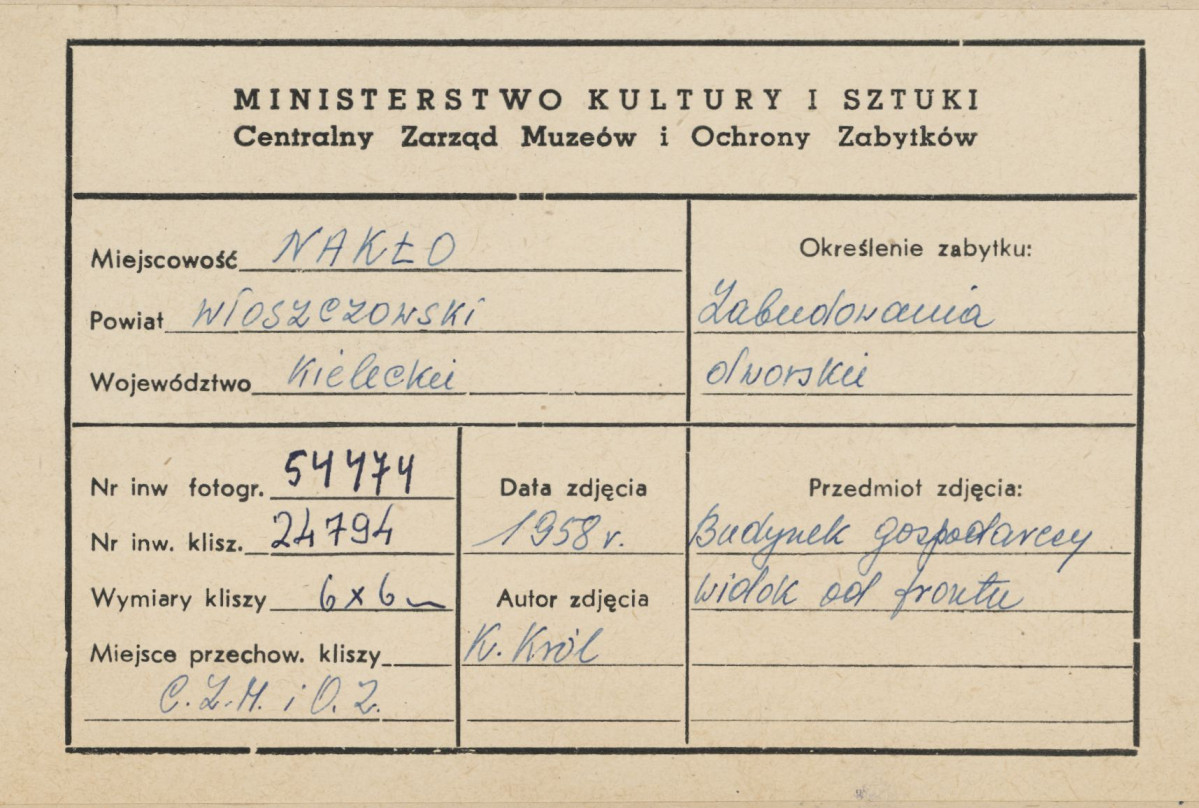 MINISTERSTWO KULTURY I SZTUKI
Centralny Zarząd Muzeów i Ochrony Zabytków
Miejscowość NAKŁO
Powiat Włoszczowski
Województwo Kieleckie
Określenie zabytku:
Zabudowania
dworskie
Nr inw fotogr. 54774
Nr inw. klisz. 24794
Wymiary kliszy 6x6
Miejsce przechow. kliszy
C.Z.M. i O.Z.
Data zdjęcia
1958 r.
Autor zdjęcia
K. Król
Przedmiot zdjęcia:
Budynek gospodarczy
widok od frontu